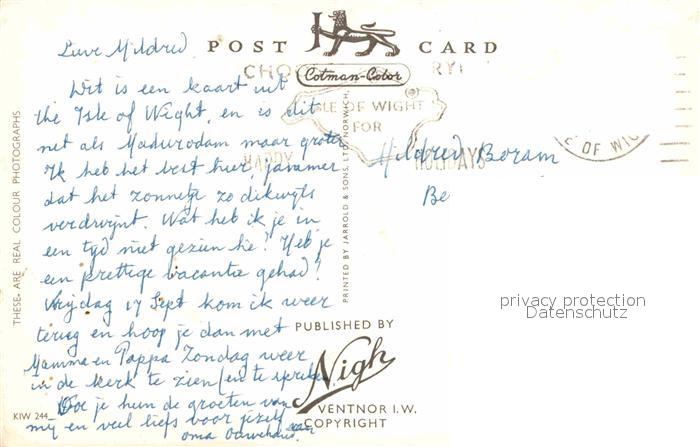 POST CARD
Cotman-Color
Lieve Mildred
Dit is een kaart uit
the Isle of Wight, en is dit
net als Madurodam maar groter
Ik heb het best hier, jammer
dat het zonnetje zo dikwijls
verdwijnt. Wat heb ik je in
een tijd niet gezien hè! Heb je
een prettige vacantie gehad?
Vrijdag 17 Sept kom ik weer
terug en hoop je dan met
Mamma en Pappa Zondag weer
in de kerk te zien (en te spreken
Doe je hun de groeten van
mij en veel liefs voor jezelf
van
oma
ISLE OF WIGHT
FOR
HAPPY HOLIDAYS
E OF WIG
Mildred Boram
Be
THESE ARE REAL COLOUR PHOTOGRAPHS
PRINTED BY JARROLD & SONS, LTD, NORWICH.
privacy protection
Datenschutz
PUBLISHED BY
Nigh
VENTNOR I.W.
COPYRIGHT
KIW 244